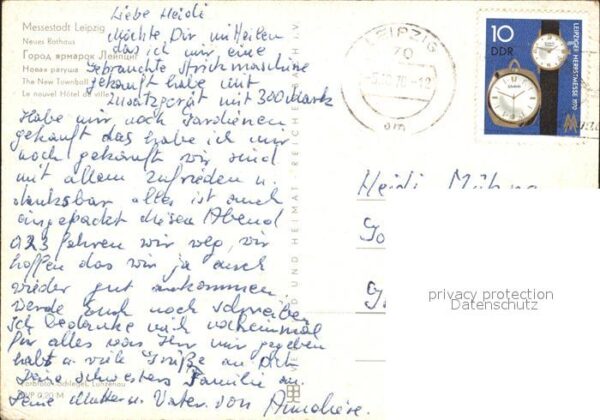 Messestadt Leipzig
Neues Rathaus
Город ярмарок Лейпциг
Новая ратуша
The New Townhall
Le nouvel Hôtel de ville
Liebe Heidi
möchte Dir mitteilen
das ich mir eine
gebrauchte Strickmaschine
gekauft habe mit
Zusatzgerät mit 300 Mark
Habe mir noch Gardienen
gekauft das habe ich mir
noch gekauft wir sind
mit allem zufrieden u.
dankbar alles ist auch
eingepackt diesen Abend
023 fahren wir weg, wir
hoffen das wir ja auch
wieder gut ankommen.
werde Euch noch schreiben
Ich bedanke mich nocheinmal
für alles was Ihr mir gegeben
habt u. viele Grüße an Dich
Deine Schwester Familie an
Deine Mutter u. Vater von
BILD UND HEIMAT REICH
LEIPZIG
70
10
DDR
LEIPZIGER HERBSTMESSE 1970
Heidi
privacy protection
Datenschutz